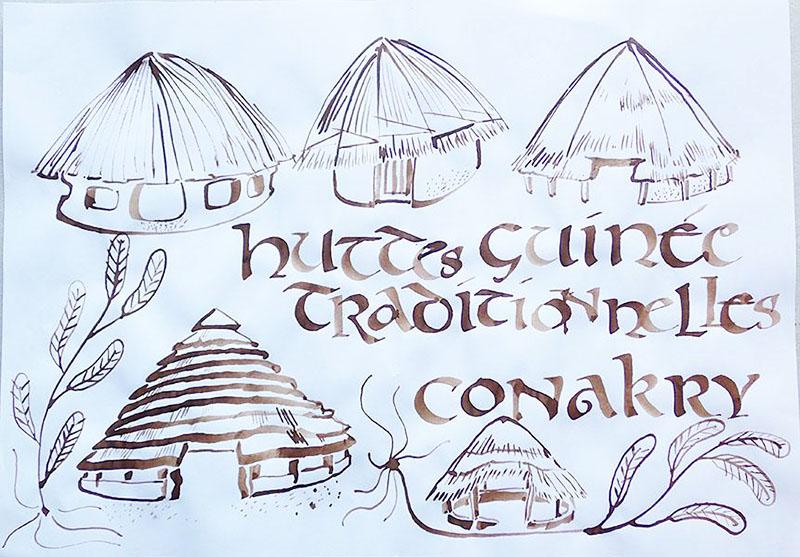 huttes Guinée
TRaditionnelles
CONakRY